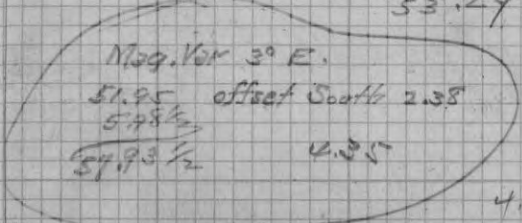 53.24
Mag. Var 3° E.
51.95 offset South 2.38
5.98 1/2
57.93 1/2 4.35
4.